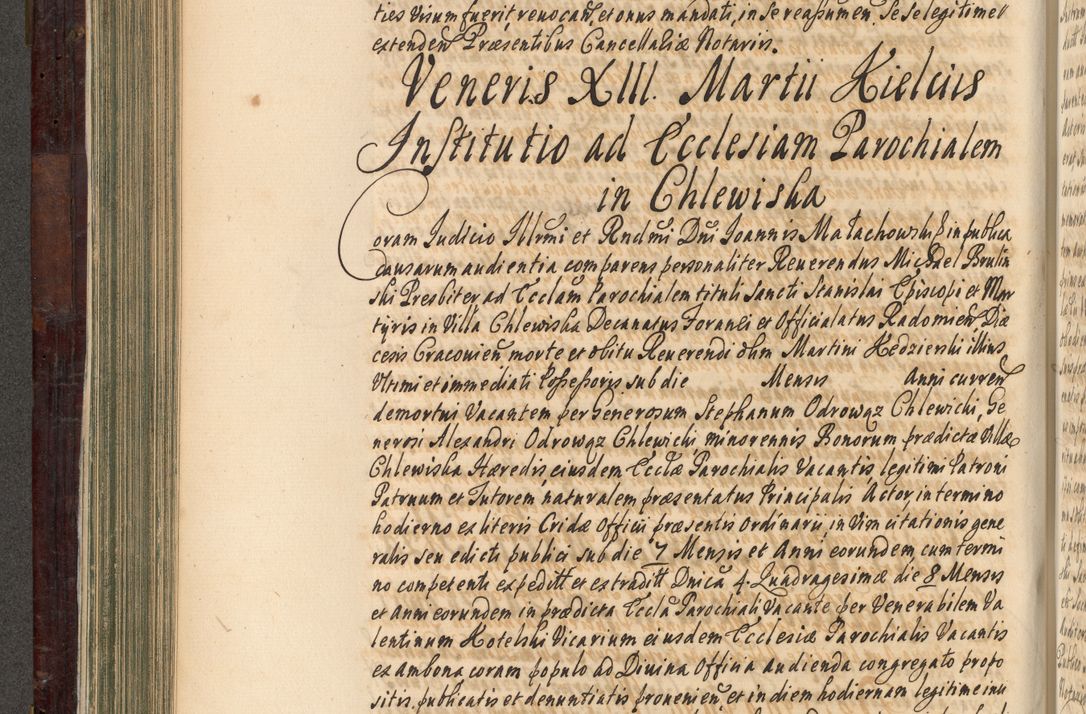 ties Visum fuerit revocan, et onus mandati, in se reassumen, Se se legitime
extenden Præsentibus Cancellaliæ Notariis.
Veneris XIII. Martii Kielciis
Institutio ad Ecclesiam Parochialem
in Chlewiska
Coram Judicio Illrmi et Rndmi Dni Joannis Małachowski in publica
Causarum audientia comparens personaliter Reverendus Michael Brulin
ski Presbiter ad Ecclam Parochialem tituli Sancti Stanislai Episcopi et Mar
tyris in Villa Chlewiska Decanatus Foranei et Officialatus Radomien Diæ
cesis Cracovien morte et obitu Reverendi olim Martini Kedzierski illius
Vltimi et immediati Possessoris sub die Mensis Anni curren
demortui Vacantem per Generosum Stephanum Odrowąz Chlewicki, Ge
nerosi Alexandri Odrowąz Chlewicki minorennis Bonorum prædictæ Villæ
Chlewiska Hæredis, eiusdem Ecclæ Parochialis Vacantis legitimi Patroni
Patruum et Tutorem naturalem præsentatus Principalis Actor in termino
hodierno ex literis Cridæ Officii præsentis Ordinarii in Vim citationis gene
ralis seu edicti publici sub die 7 Mensis et Anni eorundem cum termi
no competenti expeditt et extraditt Dnica 4. Quadragesimæ die 8 Mensis
et Anni eorundem in prædicta Eccla Parochiali Vacante per Venerabilem Va
lentinum Kotelski Vicarium eiusdem Ecclesiæ Parochialis Vacantis
ex ambona coram populo ad Divina Officia audienda congregato propo
sitis, publicatis et denuntiatis provenien, et in diem hodiernam legitime inci